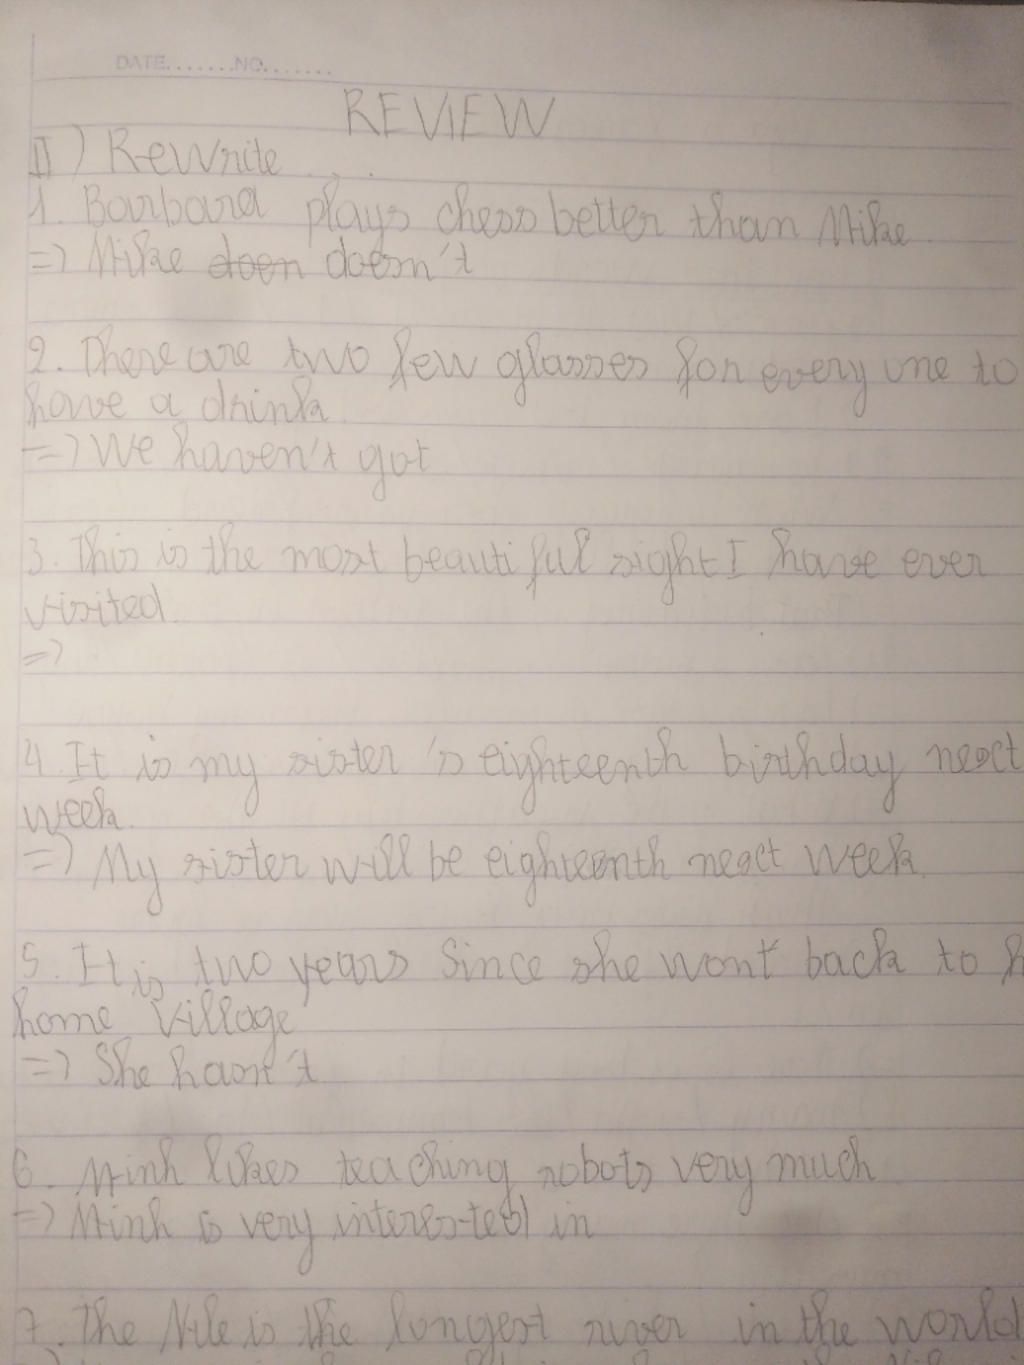 DATE.......NO.......
REVIEW
II) Rewrite...
1. Barbara plays chess better than Mike
=> Mike doen doesn't
2. There are two few glasses for every one to
have a drink
=> We haven't got
3. This is the most beautiful sight I have ever
visited.
=>
4. It is my sister's eighteenth birthday next
week.
=> My sister will be eighteenth next week.
5. It is two years since she wont back to
home village
=> She hasn't
6. Minh likes teaching robots very much
=> Minh is very interested in
7. The Nile is the longest river in the world